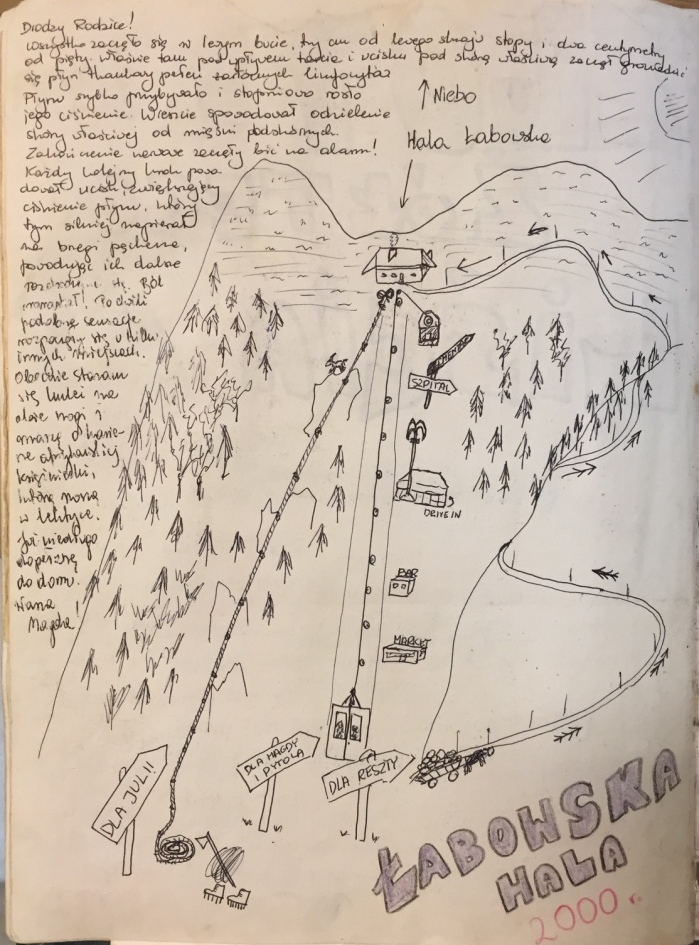 Drodzy Rodzice!
Wszystko zaczęło się w lewym bucie, trzy cm od lewego skraju stopy i dwa centymetry
od pięty. Właśnie tam pod wpływem tarcia i ucisku pod skórą właściwą zaczął gromadzić
się płyn tkankowy pełen żarłocznych limfocytów
Płynu szybko przybywało i stopniowo rosło
jego ciśnienie. Wreszcie spowodował oddzielenie
skóry właściwej od mięśni podskórnych.
Zakończenie nerwowe zaczęły bić na alarm!
Każdy kolejny krok powo-
dował ucisk zwiększający
ciśnienie płynu, który
tym silniej napierał
na brzegi pęcherza,
powodując ich dalsze
się. Ból
narastał! Po chwili
podobne sensacje
się w kilku
innych miejscach.
Obecnie staram
się kuleć na
obie nogi i
marzę o
afrykańskiej
księżniczki,
którą noszą
w lektyce.
Już niedługo
do domu.
Wasza
Magda!
↑ Niebo
Hala Łabowska
CMENTARZ
SZPITAL
DRIVE IN
BAR
MARKET
DLA JULII
DLA MAGDY
I PYTOLA
DLA RESZTY
ŁABOWSKA
HALA
2000 r.